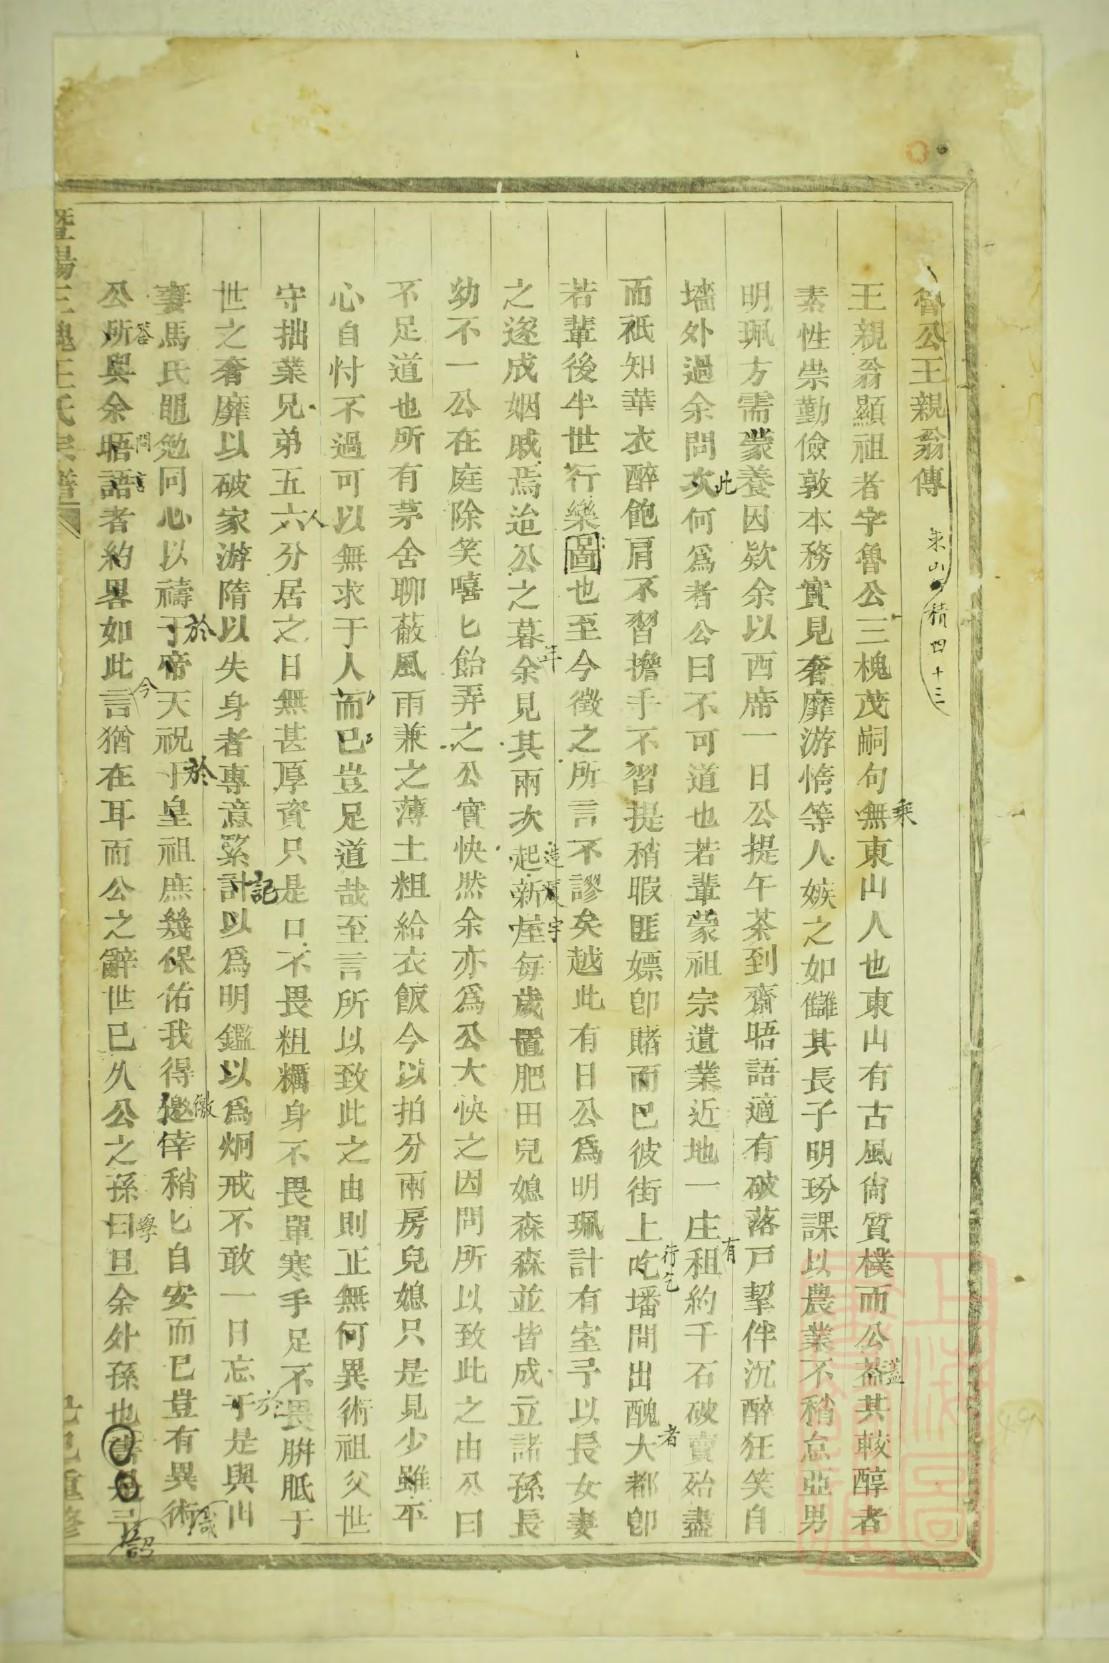 魯公王親翁傳
東山 積四十三
王親翁顯祖者字魯公三槐茂嗣句無東山人也東山有古風尙質樸而公益其較醇者
素性崇勤儉敦本務實見奢靡游惰等人嫉之如讎其長子明玢課以農業不稍怠亞男
明珮方需蒙養因欵余以西席一日公提午茶到齋晤語適有破落戸挈伴沉醉狂笑自
墻外過余問次何爲者公曰不可道也若輩蒙祖宗遺業近地一庄租約千石破賣殆盡
而祇知華衣醉飽肩不習擔手不習提稍暇匪嫖卽賭而巳彼街上吃墦間出醜大都卽
若輩後半世行樂圖也至今徵之所言不謬矣越此有日公爲明珮計有室予以長女妻
之遂成姻戚焉迨公之暮余見其兩次起新屋每歲置肥田兒媳森森並皆成立諸孫長
幼不一公在庭除笑嘻匕飴弄之公實快然余亦爲公大快之因問所以致此之由公曰
不足道也所有茅舍聊蔽風雨兼之薄土粗給衣飯今以拍分兩房兒媳只是見少雖不
心自忖不過可以無求于人而巳豈足道哉至言所以致此之由則正無何異術祖父世
守拙業兄弟五六分居之日無甚厚資只是口不畏粗糲身不畏單寒手足不畏胼胝于
世之奢靡以破家游隋以失身者專意繁計以爲明鑑以爲炯戒不敢一日忘于是與山
妻馬氏黽勉同心以禱于帝天祝于皇祖庶幾保佑我得邀倖稍匕自安而巳豈有異術
公所與余晤語者約畧如此言猶在耳而公之辭世巳久公之孫曰旦余外孫也
暨陽三槐王氏宗譜
己巳重修
乘
益
此
有
行乞
者
年
造
宇
人
於
於
記
於
徵
答
問
今
學